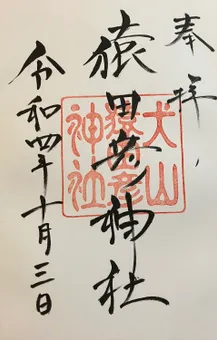 奉拝
猿田彦神社
犬山
猿田彦
神社
令和四年十月三日